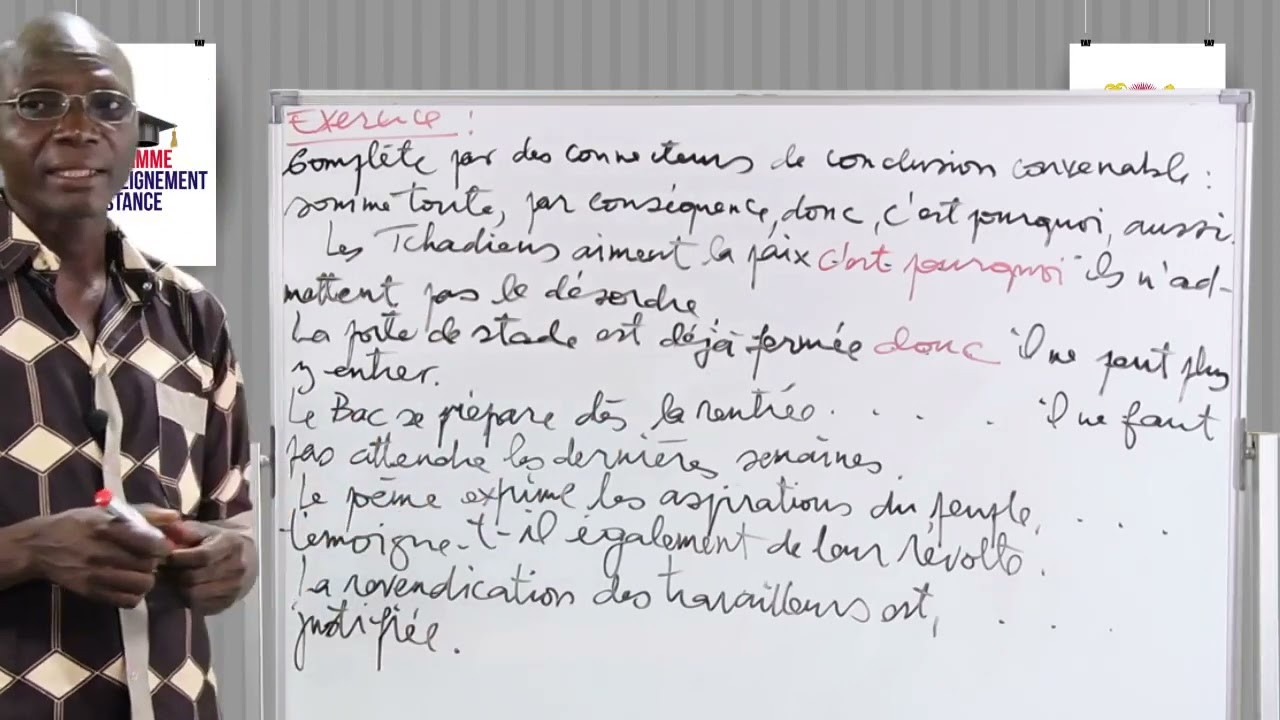 MME
EIGNEMENT
STANCE
Exercice :
Complète par des connecteurs de conclusion convenable :
somme toute, par conséquence, donc, c'est pourquoi, aussi.
Les Tchadiens aiment la paix c'est pourquoi ils n'ad-
mettent pas le désordre
La porte de stade est déjà fermée donc il ne peut plus
y entrer.
Le Bac se prépare dès la rentrée. . . . il ne faut
pas attendre les dernières semaines.
Le poème exprime les aspirations du peuple, . . .
temoigne-t-il également de leur révolte.
La revendication des travailleurs est, . . .
justifiée.